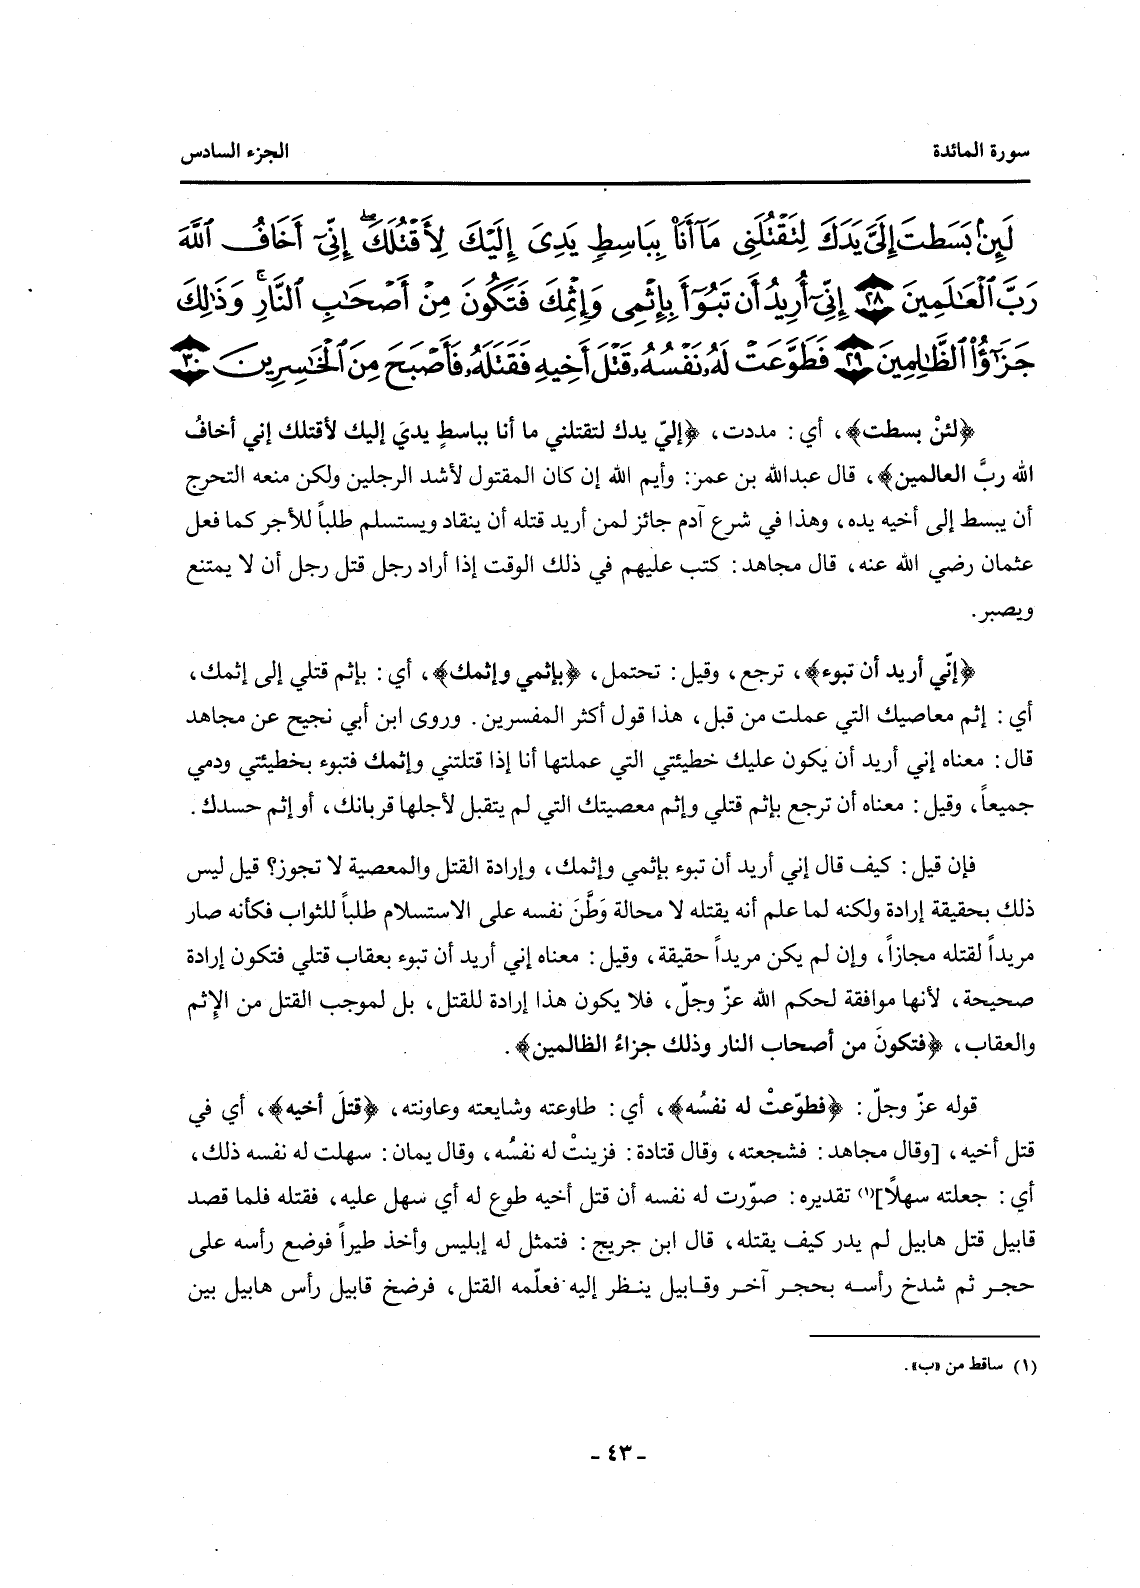 سورة المائدة
الجزء السادس
لَئِنۢ بَسَطتَ إِلَيَّ يَدَكَ لِتَقْتُلَنِي مَآ أَنَا۠ بِبَاسِطٍ يَدِيَ إِلَيْكَ لِأَقْتُلَكَ ۖ إِنِّيٓ أَخَافُ ٱللَّهَ
رَبَّ ٱلْعَٰلَمِينَ ٢٨ إِنِّيٓ أُرِيدُ أَن تَبُوٓأَ بِإِثْمِي وَإِثْمِكَ فَتَكُونَ مِنْ أَصْحَٰبِ ٱلنَّارِ ۚ وَذَٰلِكَ
جَزَٰٓؤُا۟ ٱلظَّٰلِمِينَ ٢٩ فَطَوَّعَتْ لَهُۥ نَفْسُهُۥ قَتْلَ أَخِيهِ فَقَتَلَهُۥ فَأَصْبَحَ مِنَ ٱلْخَٰسِرِينَ ٣٠
﴿لئنْ بسطت﴾، أي: مددت، ﴿إليّ يدك لتقتلني ما أنا بباسطٍ يديَ إليك لأقتلك إني أخافُ
الله ربَّ العالمين﴾، قال عبدالله بن عمر: وأيم الله إن كان المقتول لأشد الرجلين ولكن منعه التحرج
أن يبسط إلى أخيه يده، وهذا في شرع آدم جائز لمن أريد قتله أن ينقاد ويستسلم طلباً للأجر كما فعل
عثمان رضي الله عنه، قال مجاهد: كتب عليهم في ذلك الوقت إذا أراد رجل قتل رجل أن لا يمتنع
ويصبر.
﴿إنّي أريد أن تبوء﴾، ترجع، وقيل: تحتمل، ﴿بإثمي وإثمك﴾، أي: بإثم قتلي إلى إثمك،
أي: إثم معاصيك التي عملت من قبل، هذا قول أكثر المفسرين. وروى ابن أبي نجيح عن مجاهد
قال: معناه إني أريد أن يكون عليك خطيئتي التي عملتها أنا إذا قتلتني وإثمك فتبوء بخطيئتي ودمي
جميعاً، وقيل: معناه أن ترجع بإثم قتلي وإثم معصيتك التي لم يتقبل لأجلها قربانك، أو إثم حسدك.
فإن قيل: كيف قال إني أريد أن تبوء بإثمي وإثمك، وإرادة القتل والمعصية لا تجوز؟ قيل ليس
ذلك بحقيقة إرادة ولكنه لما علم أنه يقتله لا محالة وَطَّنَ نفسه على الاستسلام طلباً للثواب فكأنه صار
مريداً لقتله مجازاً، وإن لم يكن مريداً حقيقة، وقيل: معناه إني أريد أن تبوء بعقاب قتلي فتكون إرادة
صحيحة، لأنها موافقة لحكم الله عزّ وجلّ، فلا يكون هذا إرادة للقتل، بل لموجب القتل من الإثم
والعقاب، ﴿فتكونَ من أصحاب النار وذلك جزاءُ الظالمين﴾.
قوله عزّ وجلّ: ﴿فطوّعتْ له نفسُه﴾، أي: طاوعته وشايعته وعاونته، ﴿قتلَ أخيه﴾، أي في
قتل أخيه، [وقال مجاهد: فشجعته، وقال قتادة: فزينتْ له نفسُه، وقال يمان: سهلت له نفسه ذلك،
أي: جعلته سهلًا](١) تقديره: صوّرت له نفسه أن قتل أخيه طوع له أي سهل عليه، فقتله فلما قصد
قابيل قتل هابيل لم يدر كيف يقتله، قال ابن جريج: فتمثل له إبليس وأخذ طيراً فوضع رأسه على
حجر ثم شدخ رأسه بحجر آخر وقابيل ينظر إليه فعلّمه القتل، فرضخ قابيل رأس هابيل بين
(١) ساقط من «ب».
- ٤٣ -